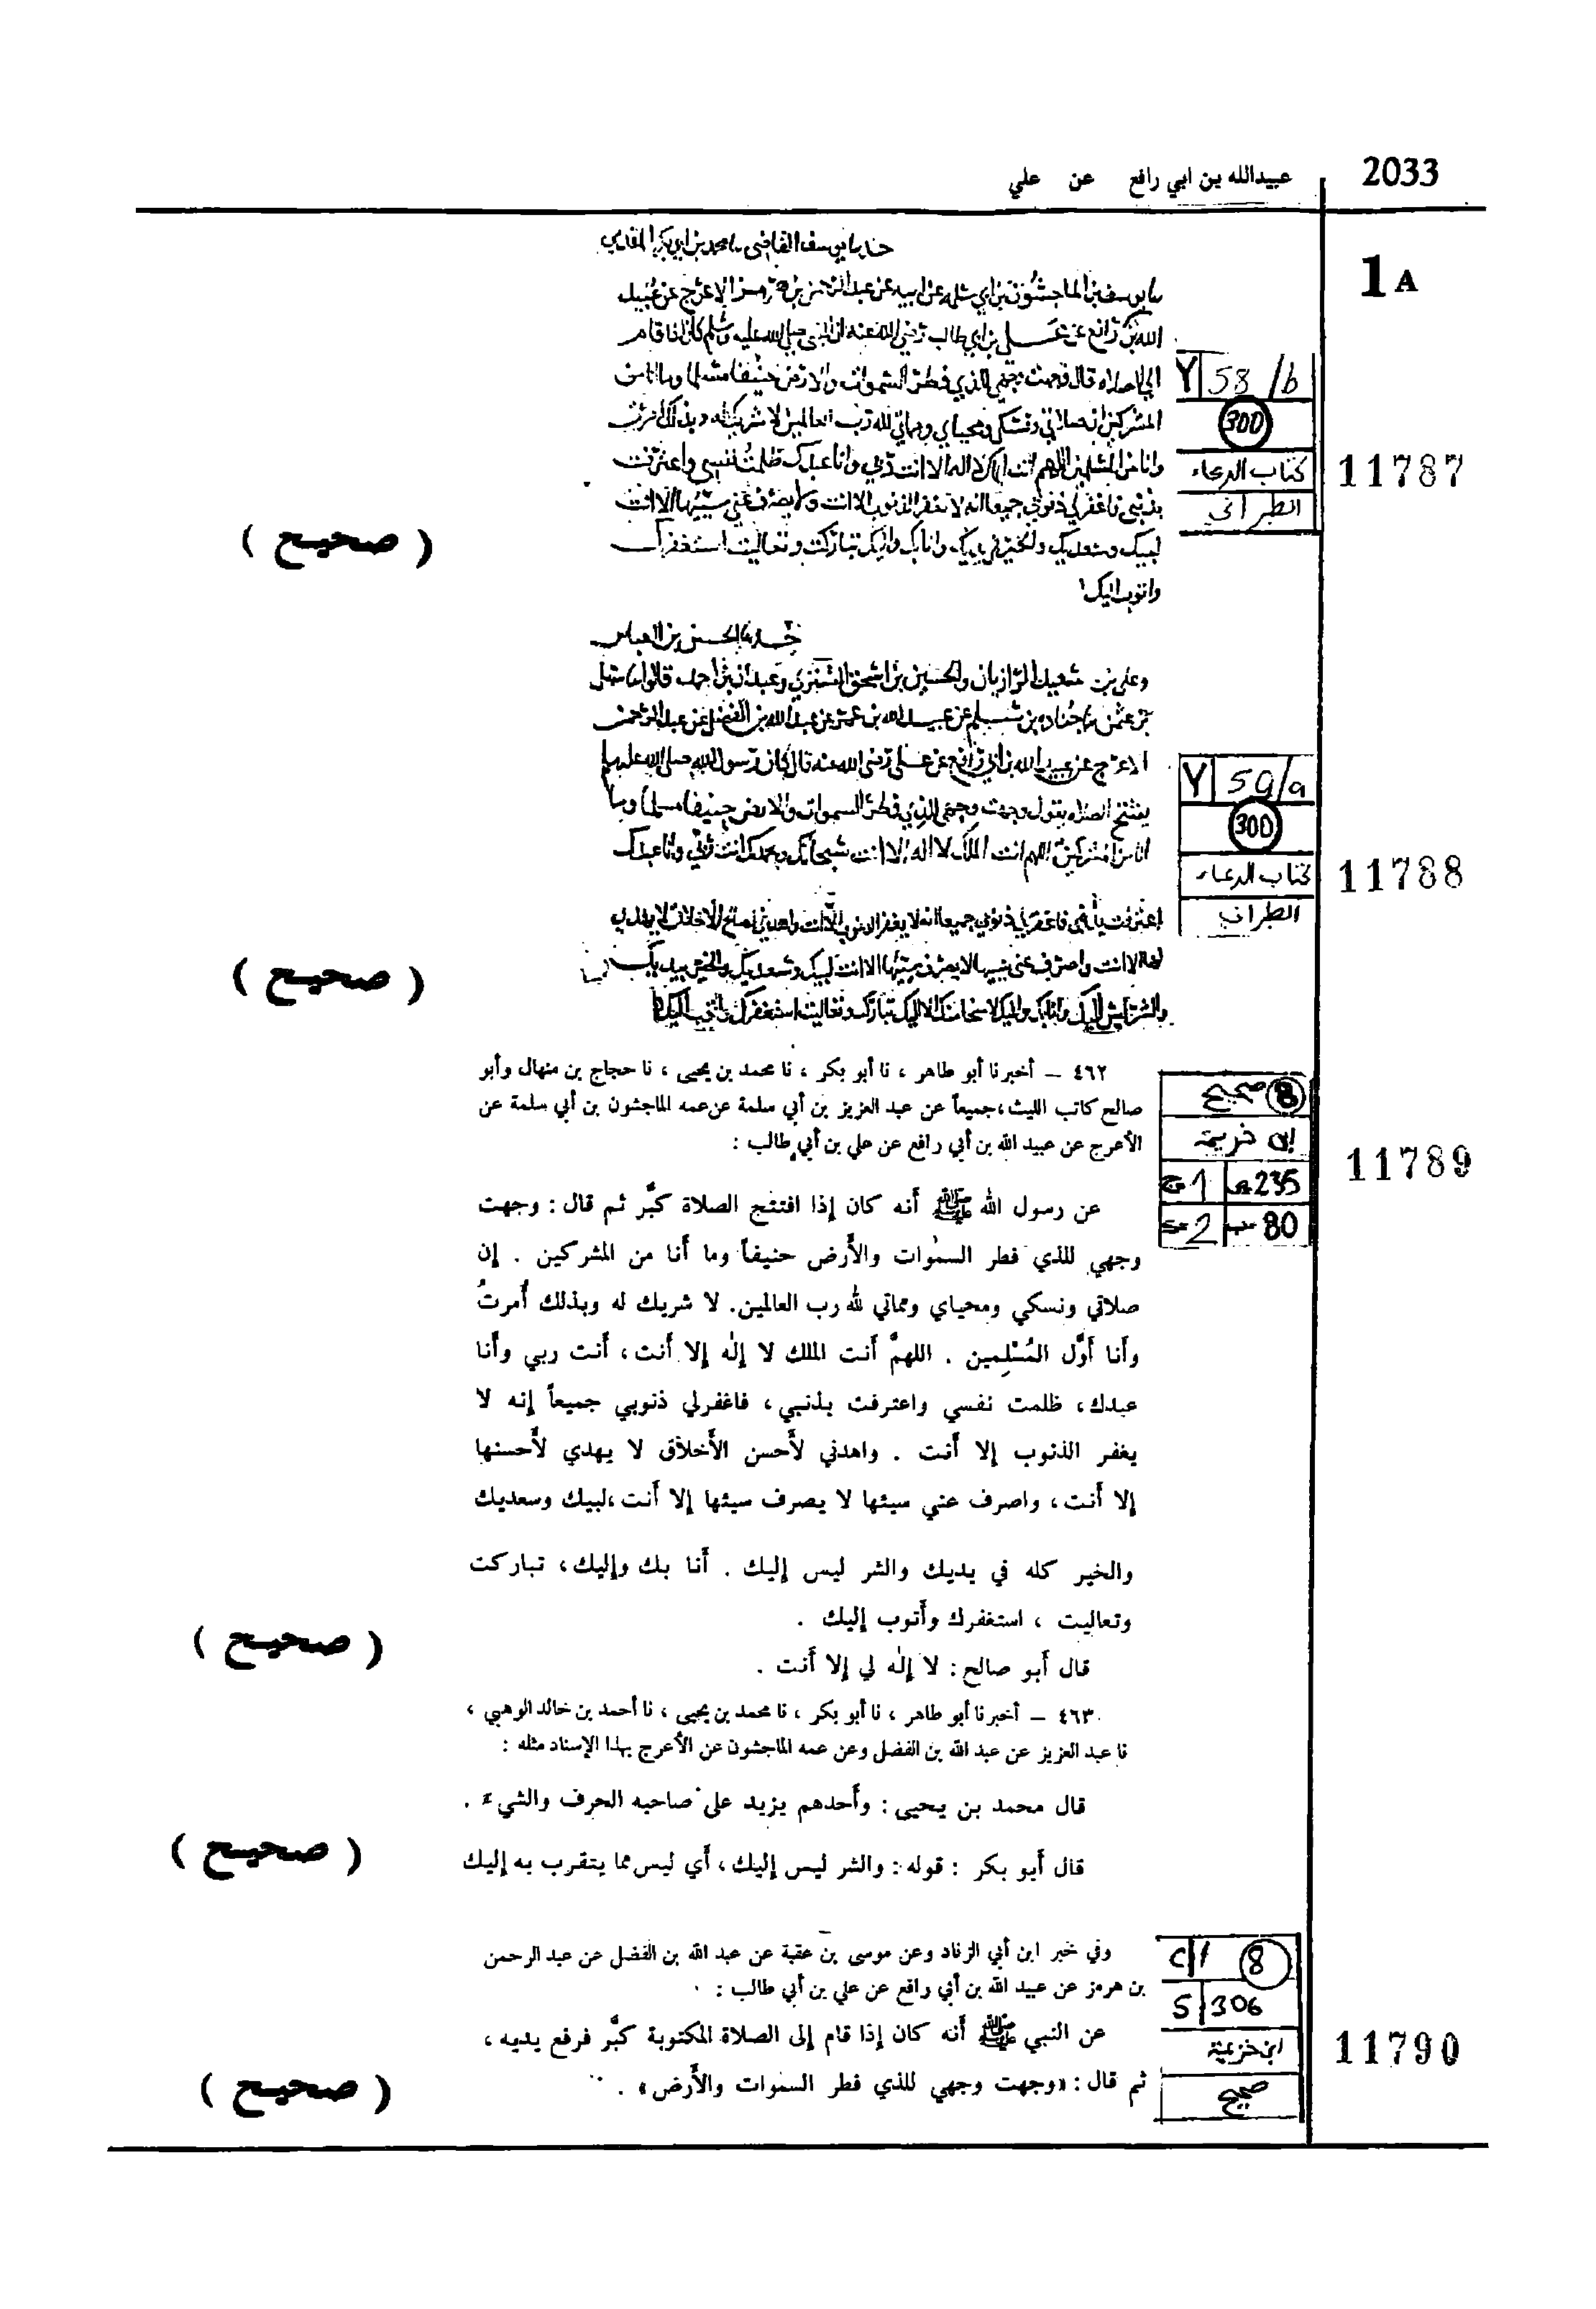 2033
عبيدالله بن ابي رافع عن علي
1A
حدثنا يوسف القاضي نا محمد بن ابي بكر المقدمي
نا يوسف بن الماجشون بن ابي سلمه عن ابيه عن عبد الرحمن بن هرمز الاعرج عن عبيد
الله بن رافع عن علي بن ابي طالب رضي الله عنه ان النبي صلى الله عليه وسلم كان اذا قام
الى الصلاه قال وجهت وجهي للذي فطر السموات والارض حنيفا مسلما وما انا من
المشركين ان صلاتي ونسكي ومحياي ومماتي لله رب العالمين لا شريك له وبذلك امرت
وانا من المسلمين اللهم انت الملك لا اله الا انت ربي وانا عبدك ظلمت نفسي واعترفت
بذنبي فاغفر لي ذنوبي جميعا انه لا يغفر الذنوب الا انت ولا يصرف عني سيئها الا انت
لبيك وسعديك والخير في يديك وانا بك واليك تباركت وتعاليت استغفرك
واتوب اليك
Y 58/b
300
كتاب الدعاء
الطبراني
11787
( صحيح )
حدثنا الحسن بن العباس
وعلي بن سعيد الرازيان والحسين بن اسحق التستري وعبدان بن احمد قالوا نا سهل
بن عثمن نا جناده بن سلم عن عبيد الله بن عمر عن عبد الله بن الفضل عن عبد الرحمن
الاعرج عن عبيد الله بن ابي رافع عن علي رضي الله عنه قال كان رسول الله صلى الله عليه
يفتتح الصلاه يقول وجهت وجهي للذي فطر السموات والارض حنيفا مسلما وما
انا من المشركين اللهم انت الملك لا اله الا انت سبحانك وبحمدك انت ربي وانا عبدك
اعترفت فاغفر لي ذنوبي جميعا انه لا يغفر الذنوب الا انت واهدني لا يهدي
الا انت واصرف عني سيئها لا يصرف سيئها الا انت لبيك وسعديك والخير بيديك
والشر ليس اليك وانا بك واليك لا منجا منك الا اليك تباركت وتعاليت استغفرك واتوب اليك
Y 59/a
300
كتاب الدعاء
الطبراني
11788
( صحيح )
٤٦٢ – أخبرنا أبو طاهر ، نا أبو بكر ، نا محمد بن يحيى ، نا حجاج بن منهال وأبو
صالح كاتب الليث،جميعاً عن عبد العزيز بن أبي سلمة عن عمه الماجشون بن أبي سلمة عن
الأعرج عن عبيد الله بن أبي رافع عن علي بن أبي طالب :
عن رسول الله ﷺ أنه كان إذا افتتح الصلاة كبَّر ثم قال : وجهت
وجهي للذي فطر السمٰوات والأَرض حنيفاً وما أَنا من المشركين . إن
صلاتي ونسكي ومحياي ومماتي لله رب العالمين. لا شريك له وبذلك أُمرتُ
وأَنا أَوَّل المُسْلِمين . اللهمَّ أَنت الملك لا إلٰه إلا أَنت، أَنت ربي وأَنا
عبدك، ظلمت نفسي واعترفت بذنبي، فاغفرلي ذنوبي جميعاً إنه لا
يغفر الذنوب إلا أَنت . واهدني لأَحسن الأَخلاق لا يهدي لأَحسنها
إلا أَنت، واصرف عني سيئها لا يصرف سيئها إلا أَنت،لبيك وسعديك
والخير كله في يديك والشر ليس إليك . أَنا بك وإليك، تباركت
وتعاليت ، استغفرك وأَتوب إليك .
قال أَبو صالح : لا إلٰه لي إلا أَنت .
8 صحيح
ابن خزيمة
ج 1 ص 235
80
11789
( صحيح )
٤٦٣ – أخبرنا أبو طاهر ، نا أبو بكر ، نا محمد بن يحيى ، نا أحمد بن خالد الوهبي ،
نا عبد العزيز عن عبد الله بن الفضل وعن عمه الماجشون عن الأعرج بهذا الإسناد مثله :
قال محمد بن يحيى : وأَحدهم يزيد على صاحبه الحرف والشيء .
قال أَبو بكر : قوله : والشر ليس إليك، أَي ليس مما يتقرب به إليك
( صحيح )
وفي خبر ابن أبي الزناد وعن موسى بن عقبة عن عبد الله بن الفضل عن عبد الرحمن
بن هرمز عن عبيد الله بن أبي رافع عن علي بن أبي طالب :
عن النبي ﷺ أَنه كان إذا قام إلى الصلاة المكتوبة كبَّر فرفع يديه ،
ثم قال : «وجهت وجهي للذي فطر السمٰوات والأَرض» .
8
306
ابن خزيمة
صحيح
11790
( صحيح )